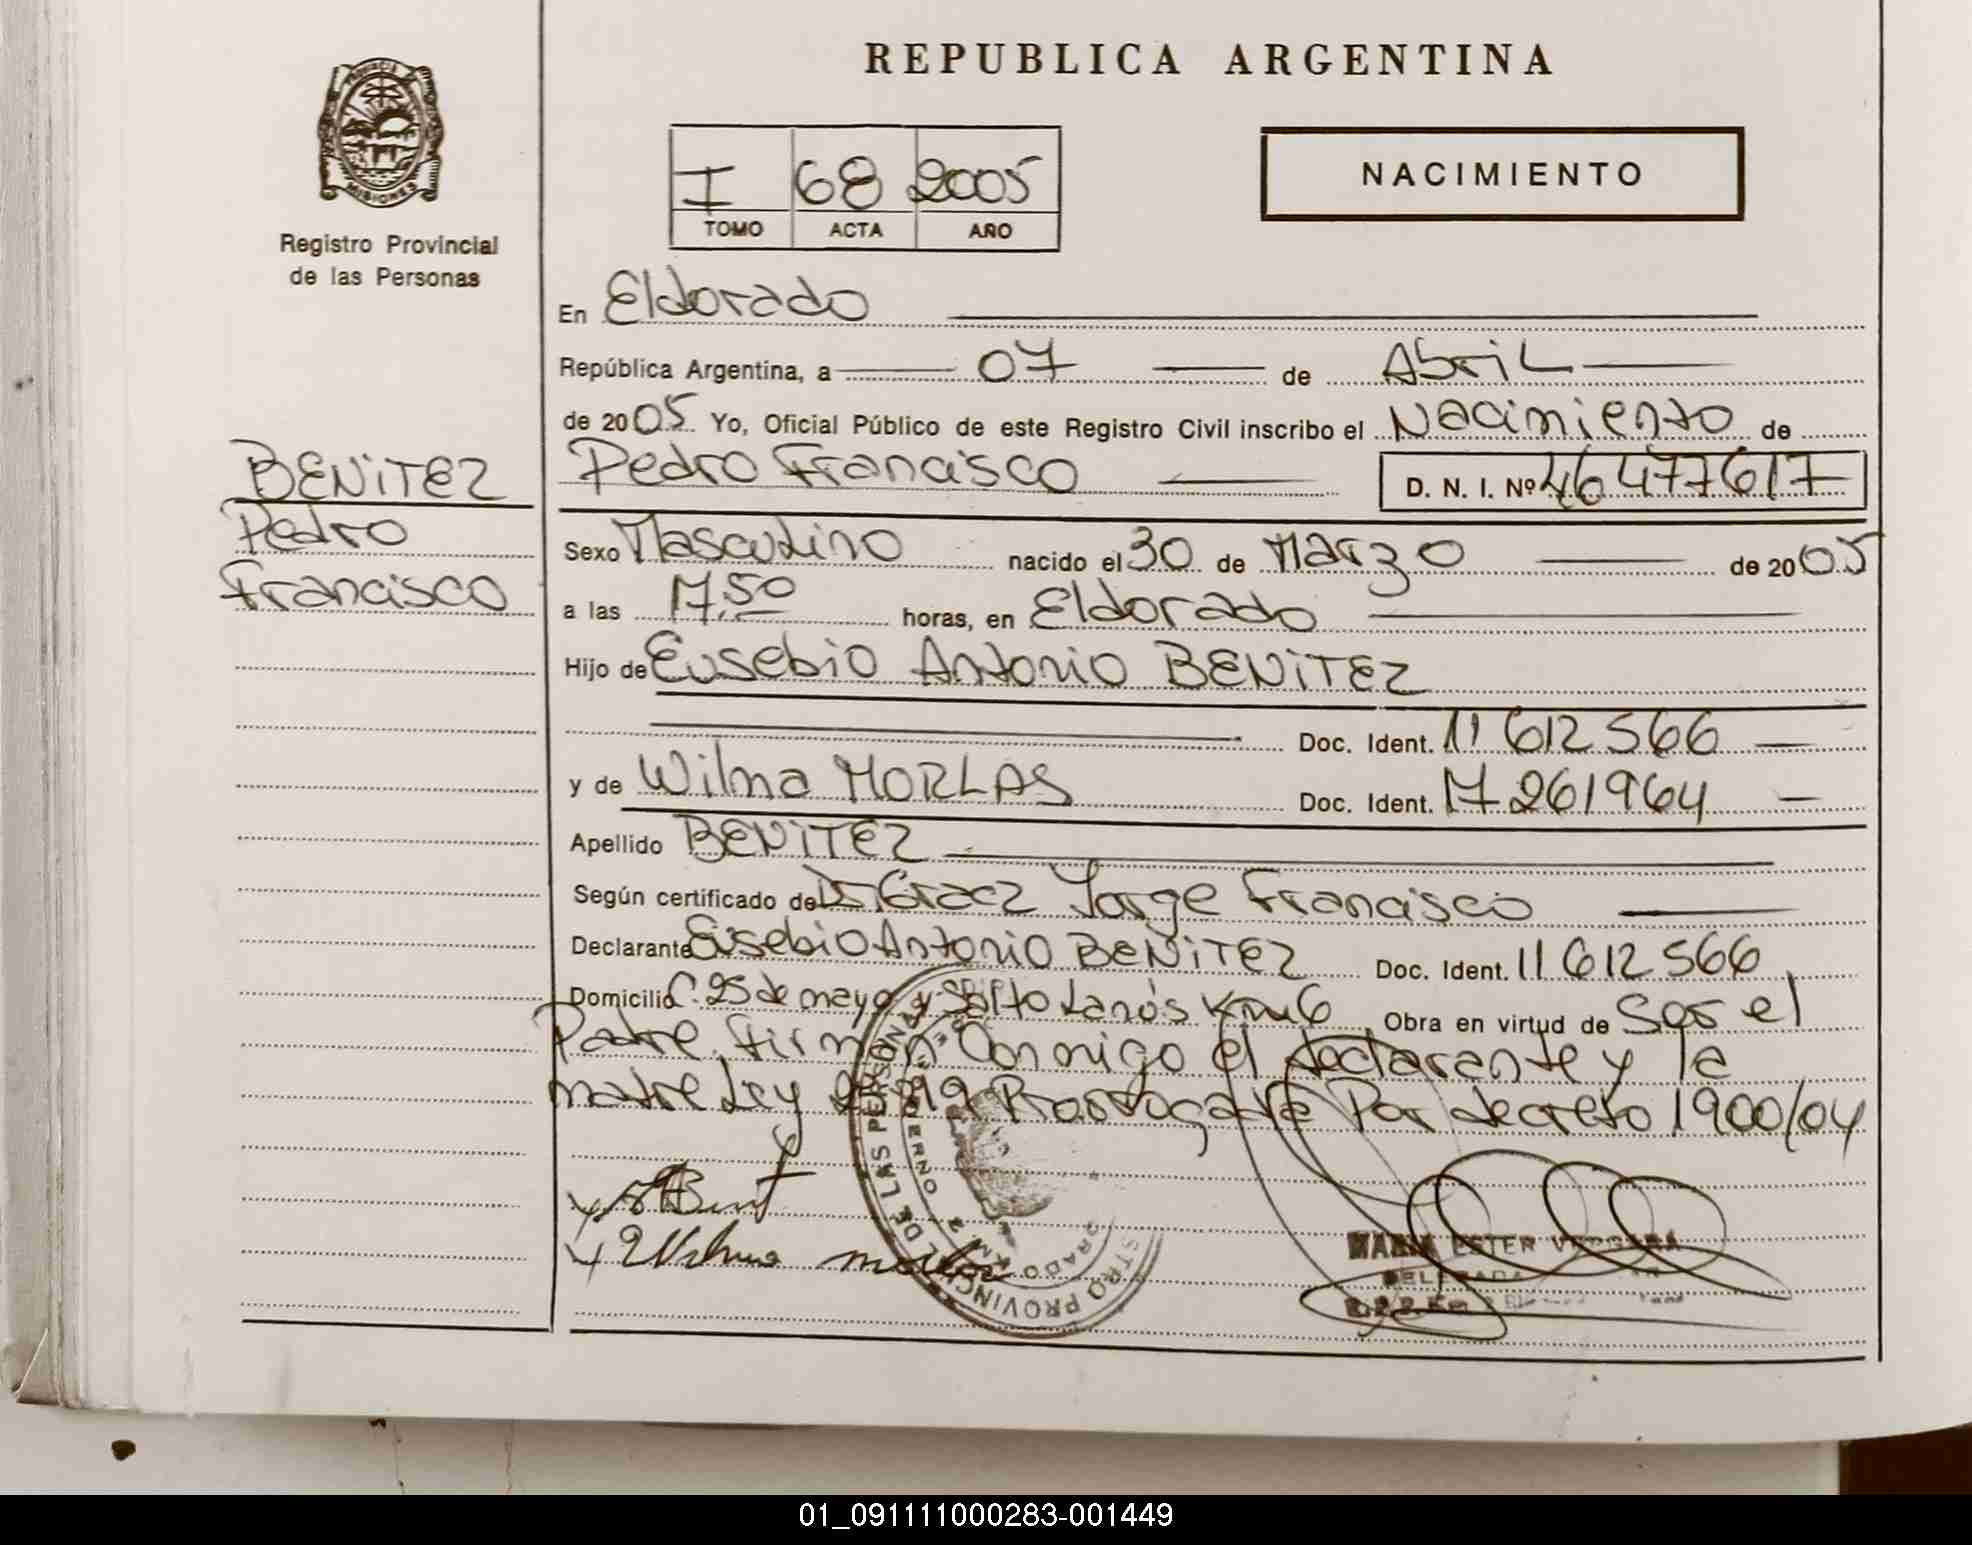 REPUBLICA ARGENTINA
PROVINCIA DE MISIONES
Registro Provincial
de las Personas
I 68 2005
TOMO ACTA AÑO
NACIMIENTO
En Eldorado
República Argentina, a 07 de Abril
de 2005 Yo, Oficial Público de este Registro Civil inscribo el Nacimiento de
Pedro Francisco D. N. I. Nº 46477617
BENITEZ
Pedro
Francisco
Sexo Masculino nacido el 30 de Marzo de 2005
a las 17,50 horas, en Eldorado
Hijo de Eusebio Antonio BENITEZ
Doc. Ident. 11 612 566
y de Wilma MORLAS Doc. Ident. 17 261964
Apellido BENITEZ
Según certificado de Dr. Graez Jorge Francisco
Declarante Eusebio Antonio BENITEZ Doc. Ident. 11 612 566
Domicilio C. 25 de mayo y Salto Lanús Km 6 Obra en virtud de Ser el
Padre, firman Conmigo el declarante y la
madre Ley Prorrogada Por decreto 1900/04
Wilma morlas
MARIA ESTER VERGARA
DELEGADA
01_091111000283-001449